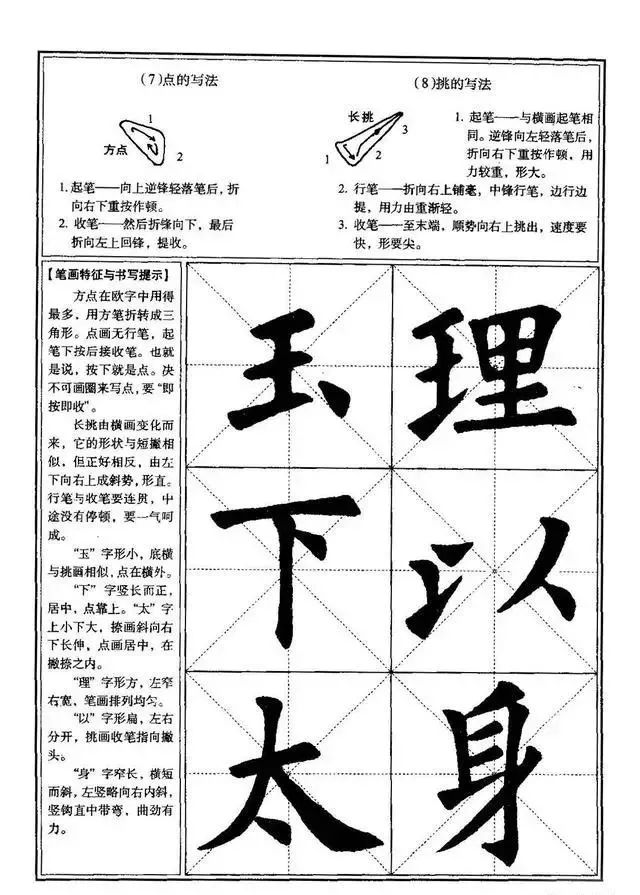 (7)点的写法
1
方点
2
1.起笔——向上逆锋轻落笔后，折
向右下重按作顿。
2. 收笔——然后折锋向下，最后
折向左上回锋，提收。
(8)挑的写法
长挑
3
1
2
1. 起笔——与横画起笔相
同。逆锋向左轻落笔后，
折向右下重按作顿，用
力较重，形大。
2. 行笔——折向右上铺毫，中锋行笔，边行边
提，用力由重渐轻。
3. 收笔——至末端，顺势向右上挑出，速度要
快，形要尖。
【笔画特征与书写提示】
方点在欧字中用得
最多，用方笔折转成三
角形。点画无行笔，起
笔下按后接收笔。也就
是说，按下就是点。决
不可画圈来写点，要“即
按即收”。
长挑由横画变化而
来，它的形状与短撇相
似，但正好相反，由左
下向右上成斜势，形直。
行笔与收笔要连贯，中
途没有停顿，要一气呵
成。
“玉”字形小，底横
与挑画相似，点在横外。
“下”字竖长而正，
居中，点靠上。“太”字
上小下大，捺画斜向右
下长伸，点画居中，在
撇捺之内。
“理”字形方，左窄
右宽，笔画排列均匀。
“以”字形扁，左右
分开，挑画收笔指向撇
头。
“身”字窄长，横短
而斜，左竖略向右内斜，
竖钩直中带弯，曲劲有
力。
玉 理
下 以
太 身